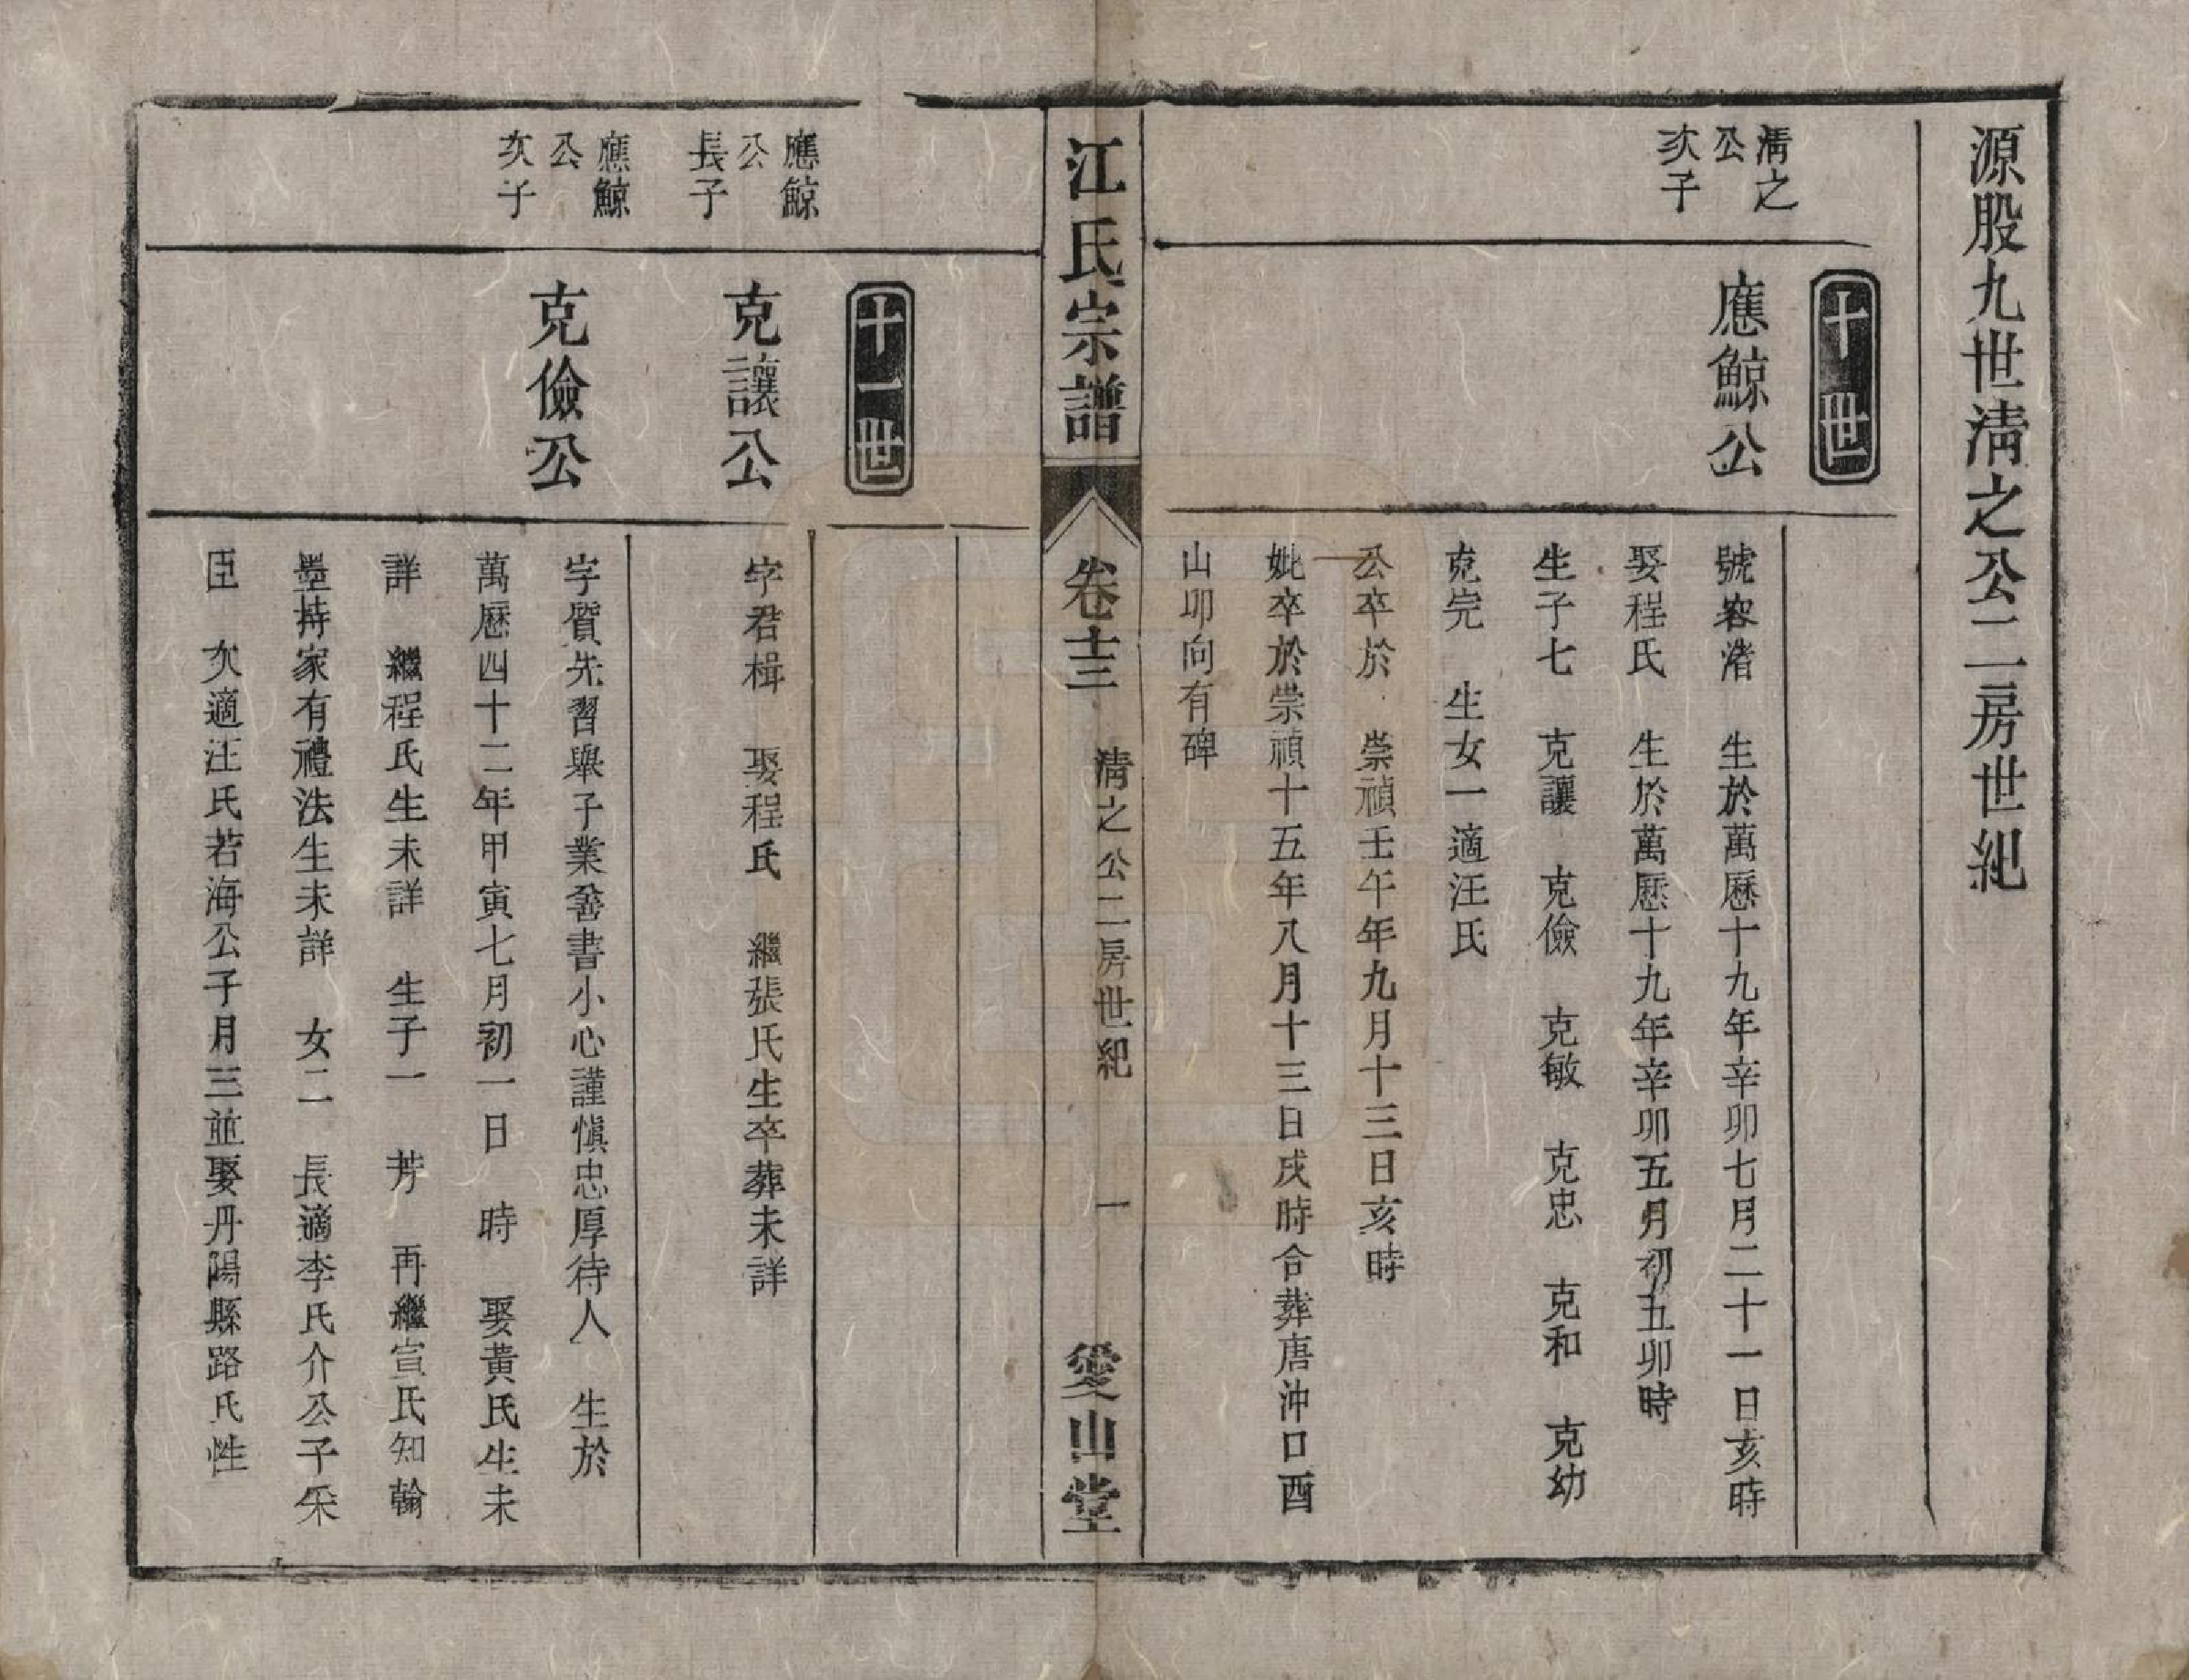 源股九世淸之公二房世紀
十世
淸之
公
次子
應鯨公
號容渚　生於萬曆十九年辛卯七月二十一日亥時
娶程氏　生於萬曆十九年辛卯五月初五卯時
生子七　克讓　克儉　克敏　克忠　克和　克幼
克完　生女一適汪氏
公卒於　崇禎壬午年九月十三日亥時
妣卒於崇禎十五年八月十三日戌時合葬唐沖口酉
山卯向有碑
江氏宗譜
卷十三
淸之公二房世紀
一
愛山堂
十一世
應鯨
公
長子
克讓公
字君楫　娶程氏　繼張氏生卒葬未詳
應鯨
公
次子
克儉公
字質先習舉子業善書小心謹愼忠厚待人　生於
萬曆四十二年甲寅七月初一日　時　娶黃氏生未
詳　繼程氏生未詳　生子一　芳　再繼宣氏知翰
墨持家有禮法生未詳　女二　長適李氏介公子采
臣　次適汪氏若海公子月三並娶丹陽縣路氏性